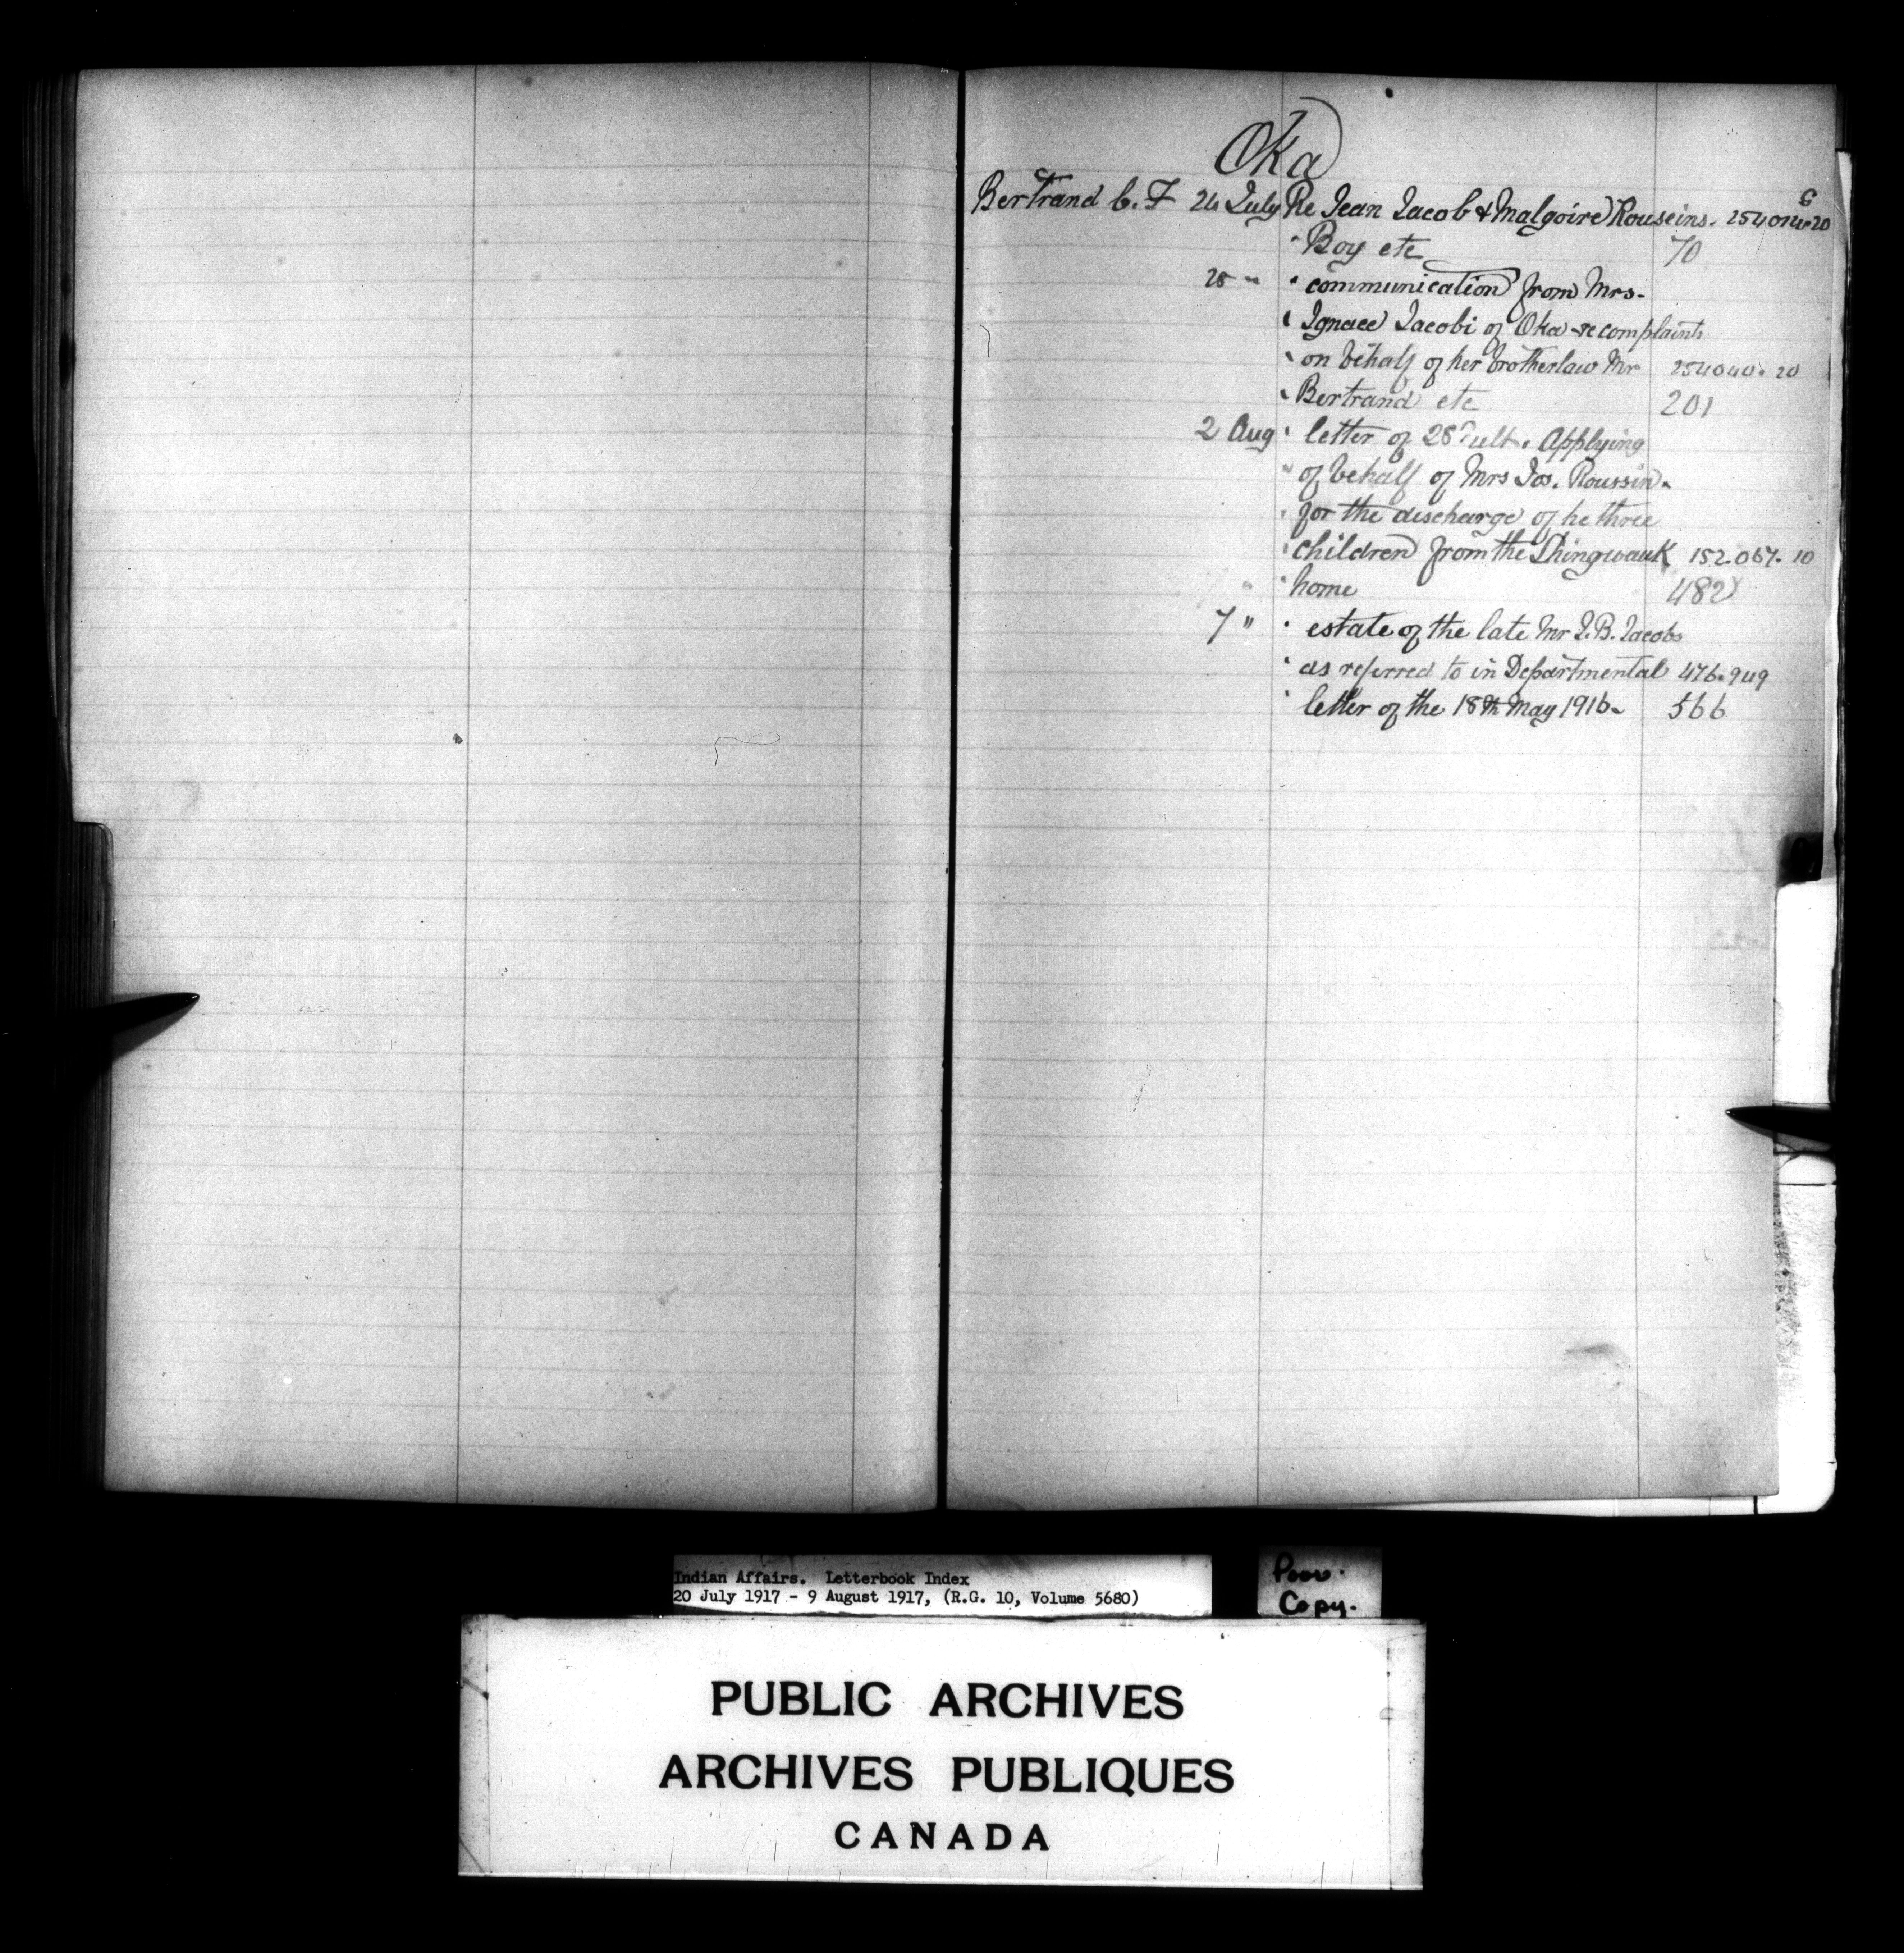 Oka
Bertrand C. F 24 July Re Jean Jacob & Malgoire Rouseins. 254014-20
" Boy etc 70
28 " " communication from Mrs.
" Ignace Jacobi of Oka re complaints
" on behalf of her brotherlaw Mr 254040. 20
" Bertrand etc 201
2 Aug " letter of 28 ult. Applying
" of behalf of Mrs Jos. Roussin.
" for the discharge of he three
" children from the Shingwauk 152.067. 10
" " home 482
7 " " estate of the late Mr J.B. Jacobs
" as referred to in Departmental 476.949
" letter of the 18th May 1916. 566
Indian Affairs. Letterbook Index
20 July 1917 - 9 August 1917, (R.G. 10, Volume 5680)
Poor.
Copy.
PUBLIC ARCHIVES
ARCHIVES PUBLIQUES
CANADA